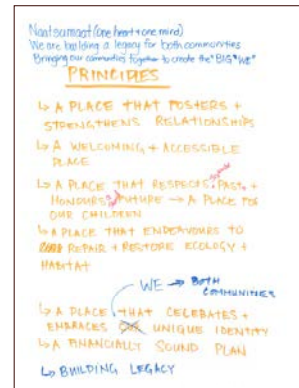 Nautsamaat (one heart + one mind)
We are building a legacy for both communities
Bringing our communities together to create the "BIG" "WE"
PRINCIPLES
↳ A PLACE THAT FOSTERS +
STRENGTHENS RELATIONSHIPS
↳ A WELCOMING + ACCESSIBLE
PLACE
↳ A PLACE THAT RESPECTS PAST +
HONOURS FUTURE → A PLACE FOR
OUR CHILDREN
↳ A PLACE THAT ENDEAVOURS TO
REPAIR + RESTORE ECOLOGY +
HABITAT
WE → BOTH
COMMUNITIES
↳ A PLACE THAT CELEBRATES +
EMBRACES OUR UNIQUE IDENTITY
↳ A FINANCIALLY SOUND PLAN
↳ BUILDING LEGACY